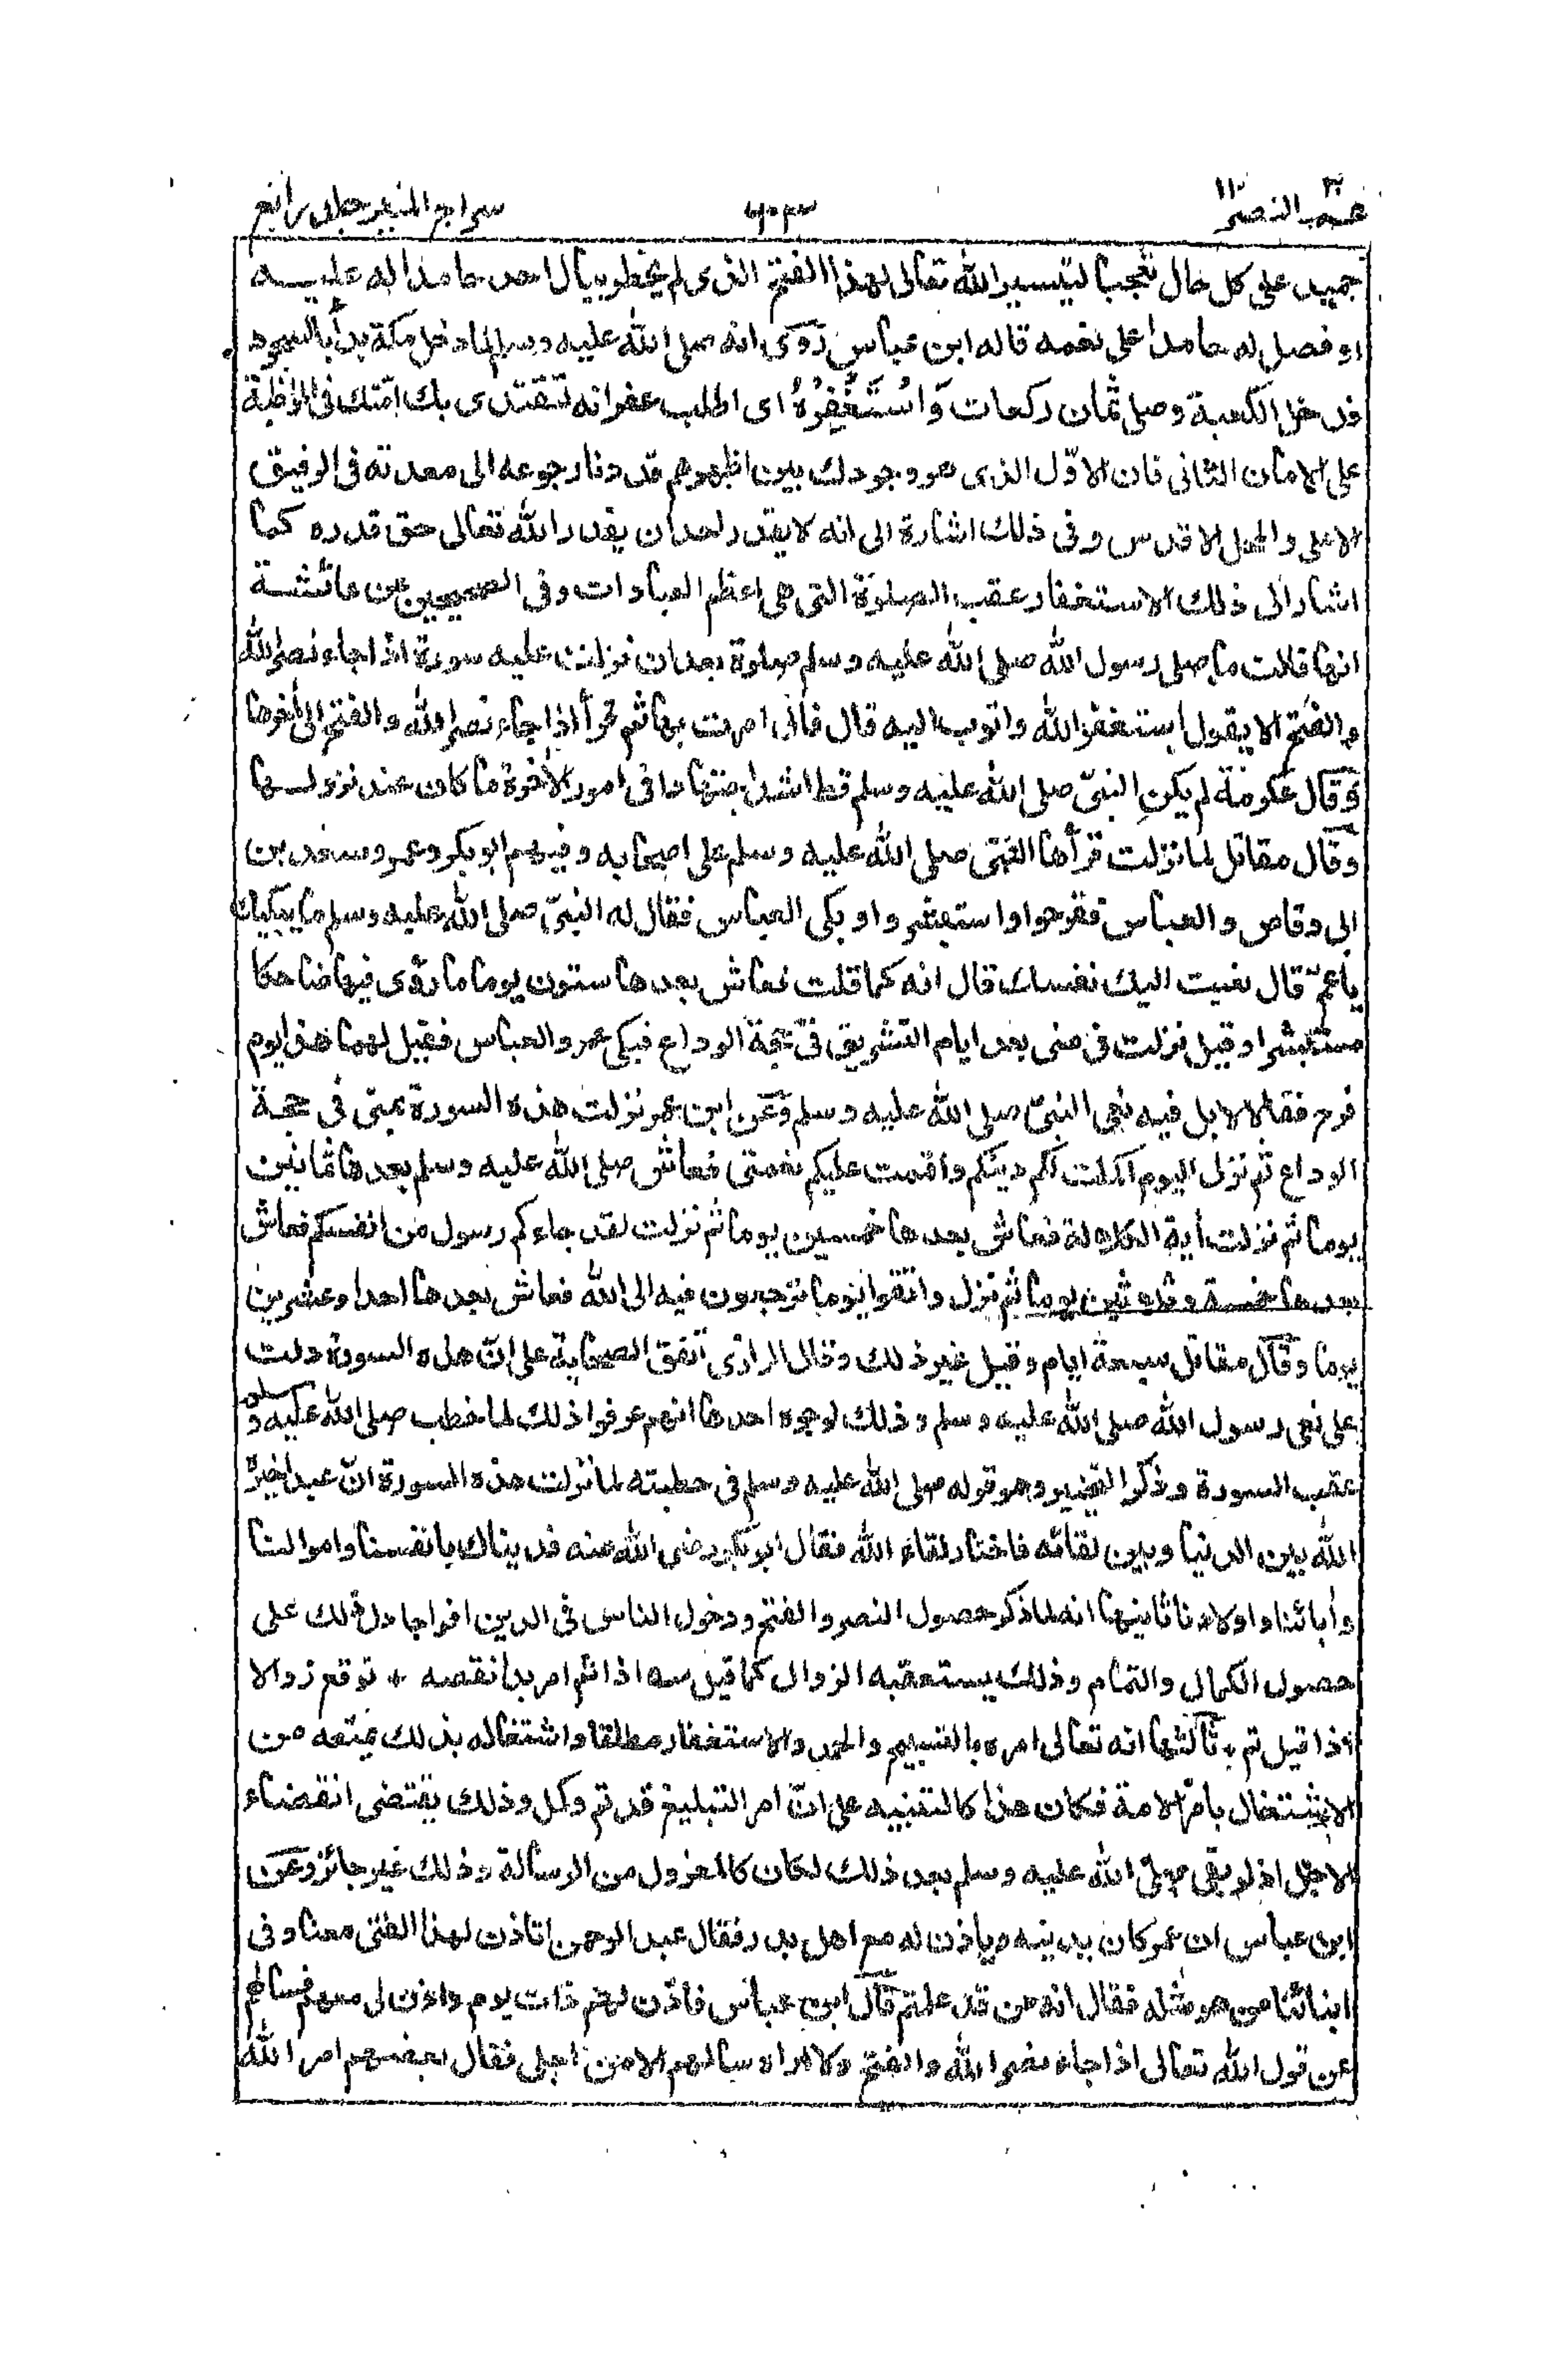 عم النصر ١١٠ ٦٠٣ سراج المنير جلد رابع
جميل على كل حال تعجبا لتيسير الله تعالى لهذا الفتح الذى لم يخطر ببال احد حامدا له عليه
او فصل له حامدا على نعمه قاله ابن عباس روى انه صلى الله عليه وسلم لما دخل مكة بدأ بالسجود
فدخل الكعبة وصلى ثمان ركعات وَاسْتَغْفِرْهُ اى اطلب غفرانه لتقتدى بك امّتك فى المواظبة
على الامان الثانى فان الاوّل الذى هو وجودك بين اظهرهم قد دنا رجوعه الى معدنه فى الرفيق
الاعلى والمحل الاقدس وفى ذلك اشارة الى انه لا يقدر احد ان يقدر الله تعالى حق قدره كما
اشار الى ذلك الاستغفار عقب الصلوة التى هى اعظم العبادات وفى الصحيحين عن عائشة
انها قالت ما صلى رسول الله صلى الله عليه وسلم صلوة بعد ان نزلت عليه سورة اذا جاء نصر الله
والفتح الا يقول استغفر الله واتوب اليه قال فانى امرت بها ثم قرأ اذا جاء نصر الله والفتح الى أخرها
وقال عكرمة لم يكن النبىّ صلى الله عليه وسلم قط اشد اجتهادا فى امور الأخرة ما كان عند نزولها
وقال مقاتل لما نزلت قرأها النبى صلى الله عليه وسلم على اصحابه وفيهم ابو بكر وعمر وسعد بن
ابى وقاص والعباس ففرحوا واستبشروا وبكى العباس فقال له النبىّ صلى الله عليه وسلم ما يبكيك
يا عمّ قال نعيت اليك نفسك قال انه كما قلت فعاش بعدها ستون يوما ما رؤى فيها ضاحكا
مستبشرا وقيل نزلت فى منى بعد ايام التشريق فى حجة الوداع فبكى عمر والعباس فقيل لهما هذا يوم
فرح فقالا لا بل فيه نعى النبىّ صلى الله عليه وسلم وعن ابن عمر نزلت هذه السورة بمنى فى حجة
الوداع ثم نزل اليوم اكملت لكم دينكم واتممت عليكم نعمتى فعاش صلى الله عليه وسلم بعدها ثمانين
يوما ثم نزلت أية الكلالة فعاش بعدها خمسين يوما ثم نزلت لقد جاءكم رسول من انفسكم فعاش
بعدها خمسة وثلاثين يوما ثم نزل واتقوا يوما ترجعون فيه الى الله فعاش بعدها احدا وعشرين
يوما وقال مقاتل سبعة ايام وقيل غير ذلك وقال الرازى اتفق الصحابة على انّ هذه السورة دلت
على نعى رسول الله صلى الله عليه وسلم وذلك لوجوه احدها انهم عرفوا ذلك لما خطب صلى الله عليه وسلم
عقب السورة وذكر التخيير وهو قوله صلى الله عليه وسلم فى خطبته لما نزلت هذه السورة انّ عبدا خيره
الله بين الدنيا وبين لقائه فاختار لقاء الله فقال ابو بكر رضى الله عنه فديناك بانفسنا واموالنا
وأبائنا واولادنا ثانيها انه لما ذكر حصول النصر والفتح ودخول الناس فى الدين افواجا دل ذلك على
حصول الكمال والتمام وذلك يستعقبه الزوال كما قيل سه اذا تم امر بدا نقصه * توقع زوالا
اذا قيل تم * ثالثها انه تعالى امره بالتسبيح والحمد والاستغفار مطلقا واشتغاله بذلك يمنعه من
الاشتغال بامر الامة فكان هذا كالتنبيه على انّ امر التبليغ قد تم وكمل وذلك يقتضى انقضاء
الاجل اذ لو بقى صلى الله عليه وسلم بعد ذلك لكان كالمعزول من الرسالة وذلك غير جائز وعن
ابن عباس ان عمر كان يدنيه وياذن له مع اهل بدر فقال عبد الرحمن اتاذن لهذا الفتى معنا وفى
ابنائنا من هو مثله فقال انه من قد علمتم قال ابن عباس فاذن لهم ذات يوم واذن لى معهم فسألهم
عن قول الله تعالى اذا جاء نصر الله والفتح ولا اراه سالهم الا من اجلى فقال بعضهم امر الله